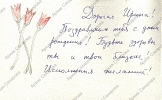 Дорогая Ирина!
Поздравляем тебя с днём
рождения! Будьте здоровы
ты и твои близкие.
Исполнения желаний!